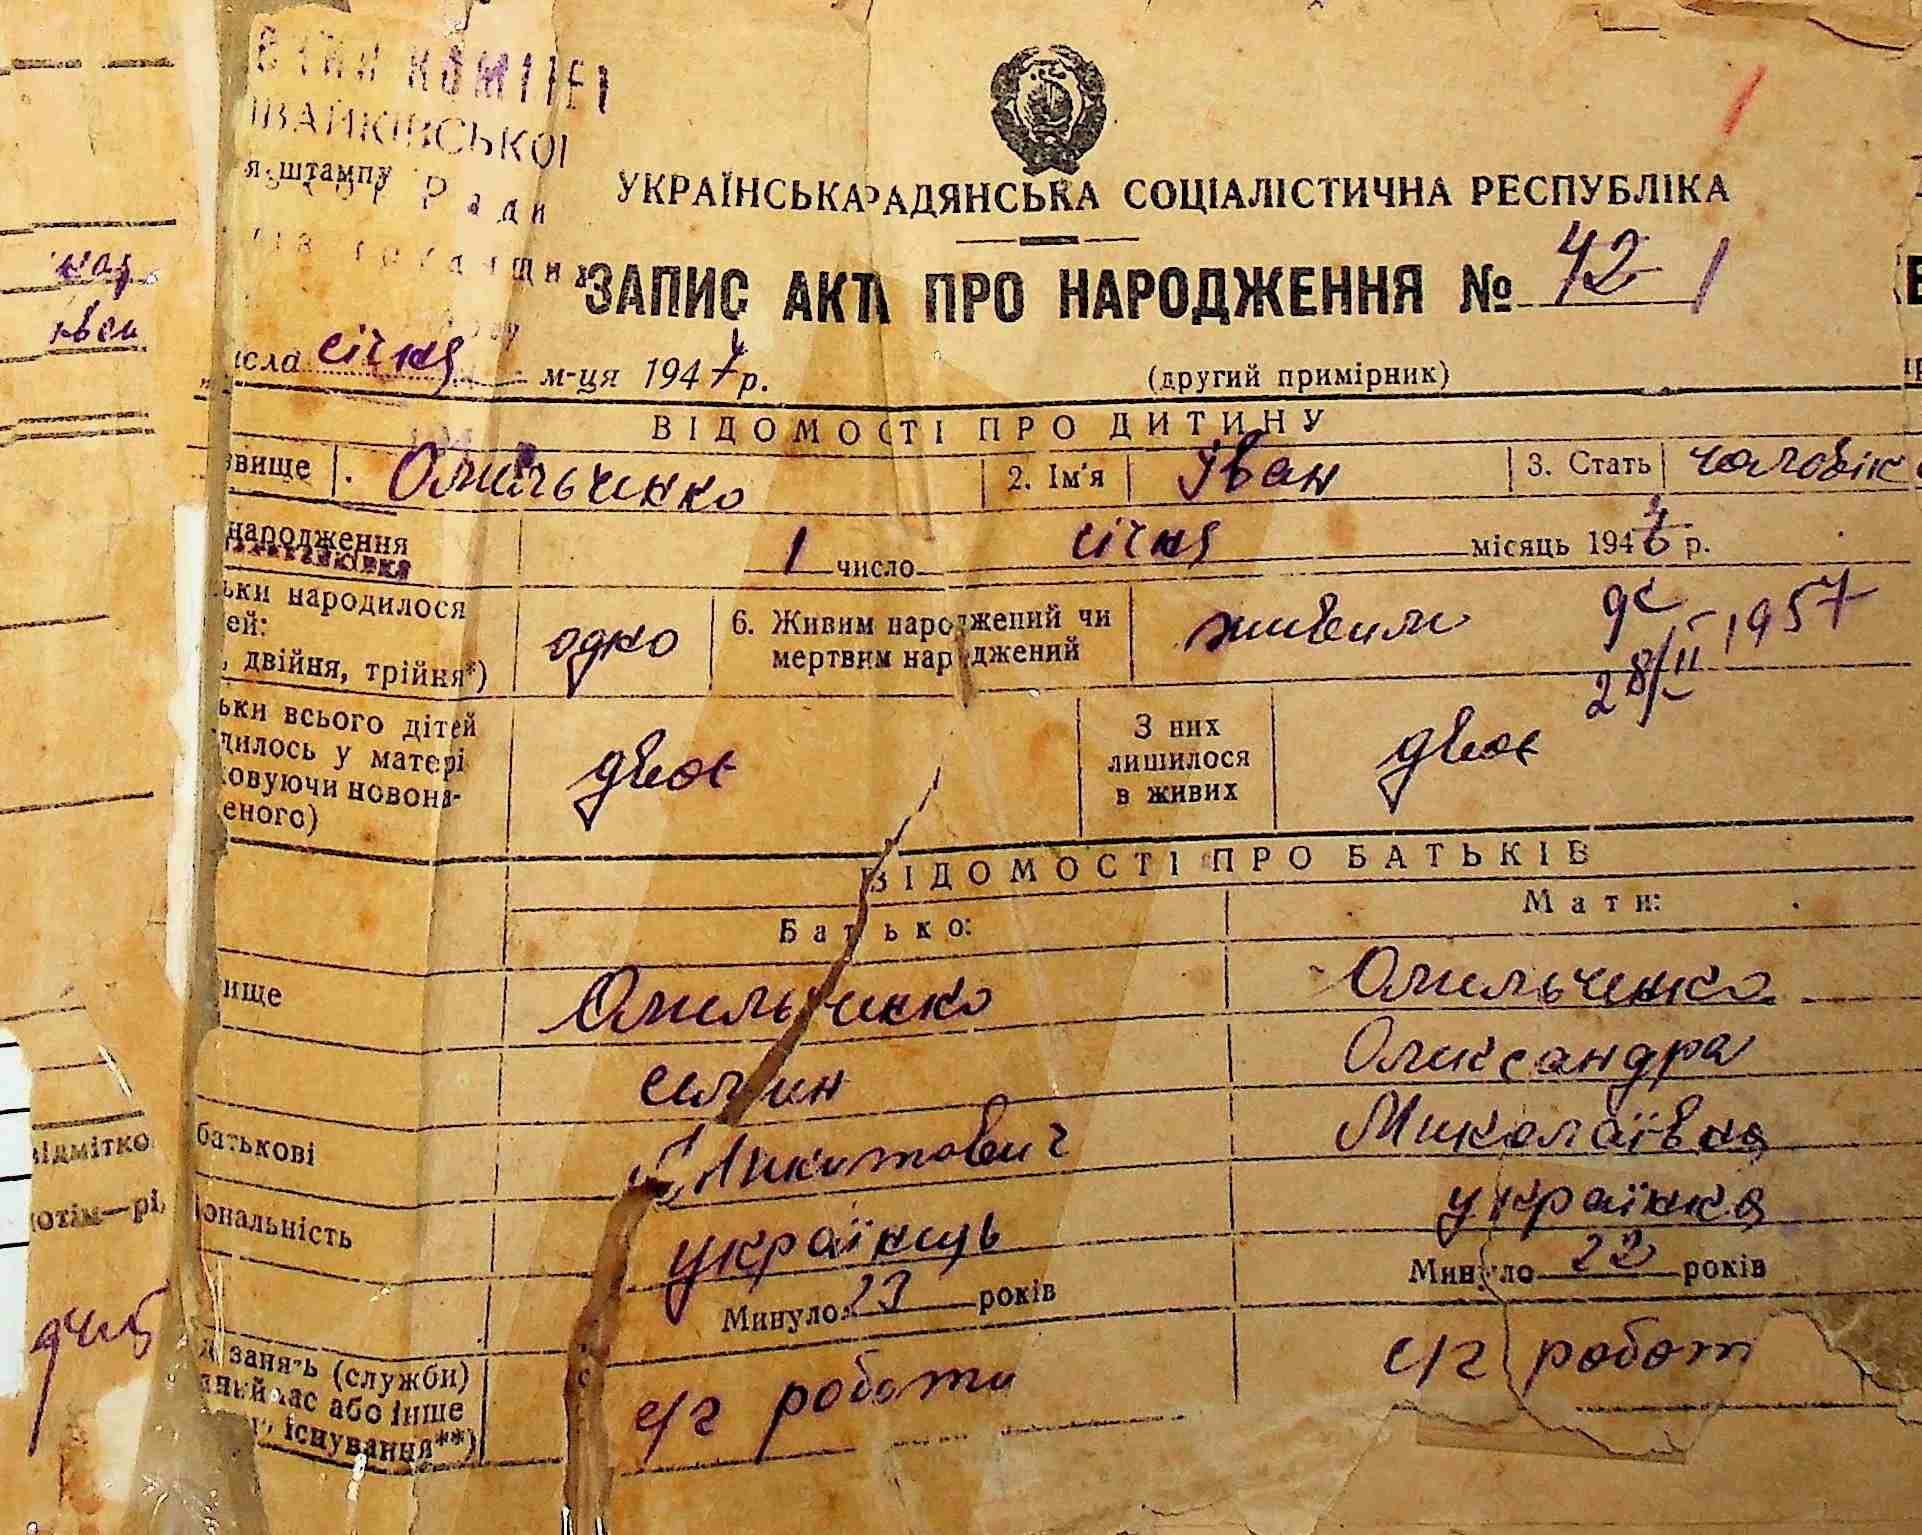 КОМІТЕТ
ІВАЙКІВСЬКОЇ
я штампу Ради
УКРАЇНСЬКА РАДЯНСЬКА СОЦІАЛІСТИЧНА РЕСПУБЛІКА
ЗАПИС АКТА ПРО НАРОДЖЕННЯ № 42
исла січня м-ця 194 р.
(другий примірник)
ВІДОМОСТІ ПРО ДИТИНУ
звище Омильченко 2. Ім'я Іван 3. Стать чоловік
народження 1 число січня місяць 194 р.
ьки народилося
ей:
, двійня, трійня*) одно 6. Живим народжений чи
мертвим народжений живим
28/II 1957
ьки всього дітей
дилось у матері
ховуючи новона-
еного) двоє З них
лишилося
в живих двоє
ВІДОМОСТІ ПРО БАТЬКІВ
Батько: Мати:
ище Омильченко Омильченко
Олександра
батькові Микитович Миколаївна
іональність українець українка
Минуло 23 років Минуло 22 років
занять (службы)
час або інше
існування**) с/г робота с/г робот
відмітко
потім—рі,